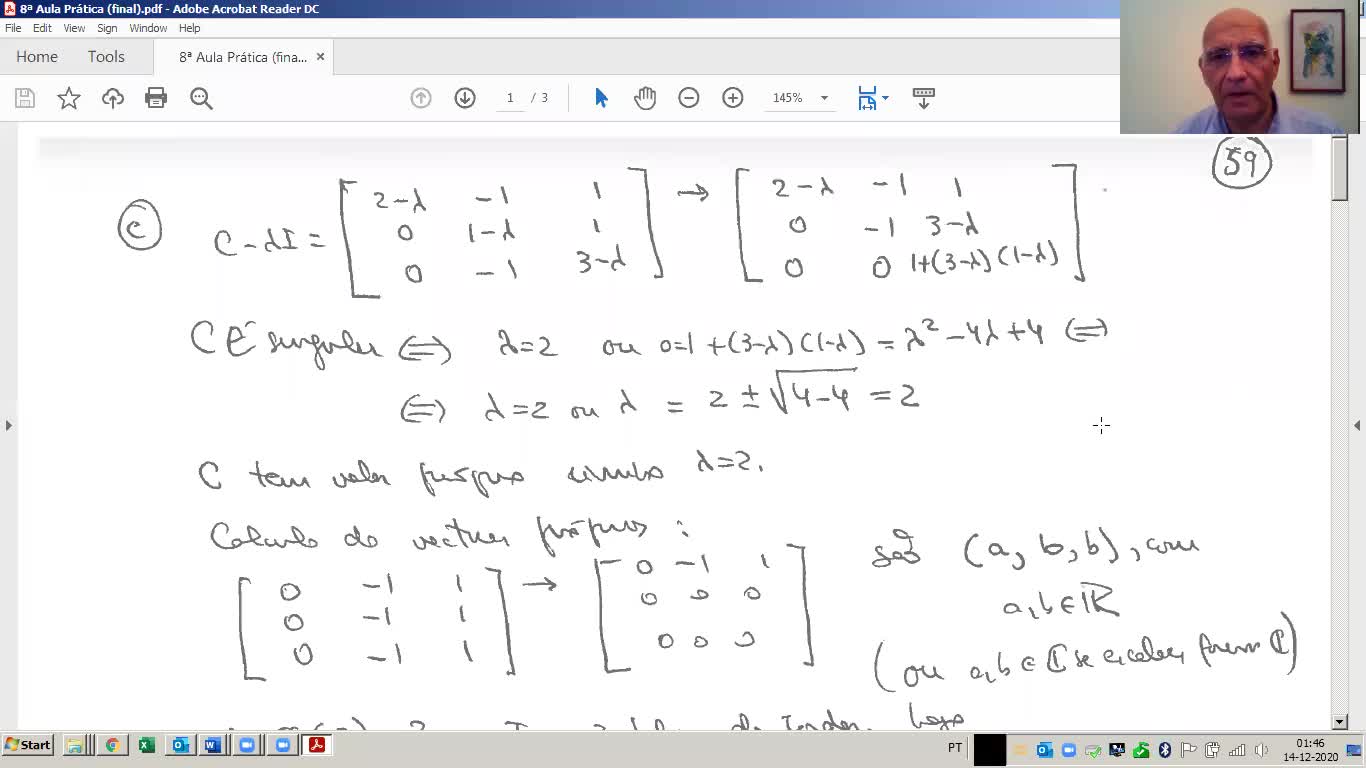 8ª Aula Prática (final).pdf - Adobe Acrobat Reader DC
File Edit View Sign Window Help
Home Tools 8ª Aula Prática (fina... ×
1 / 3 145%
59
c
C-λI = [ 2-λ -1 1 ] → [ 2-λ -1 1 ]
[ 0 1-λ 1 ] [ 0 -1 3-λ ]
[ 0 -1 3-λ ] [ 0 0 1+(3-λ)(1-λ) ]
C É singular ⇔ λ=2 ou 0=1+(3-λ)(1-λ) = λ²-4λ+4 ⇔
⇔ λ=2 ou λ = 2 ± √4-4 = 2
C tem valor próprio λ=2.
Calculo de vectores próprios :
[ 0 -1 1 ] → [ 0 -1 1 ]
[ 0 -1 1 ] [ 0 0 0 ]
[ 0 -1 1 ] [ 0 0 0 ]
são (a, b, b), com
a,b∈ℝ
(ou a,b∈ℂ se forem ℂ)
logo
Start PT 01:46
14-12-2020